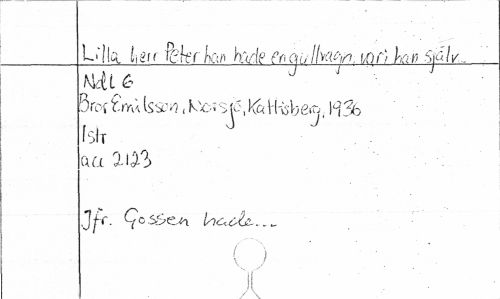 Lilla herr Peter han hade en gullvagn, vari han själv...
Ndl 6
Bror Emilsson, Norsjö, Kattisberg, 1936
1str
acc 2123
Jfr. Gossen hade...